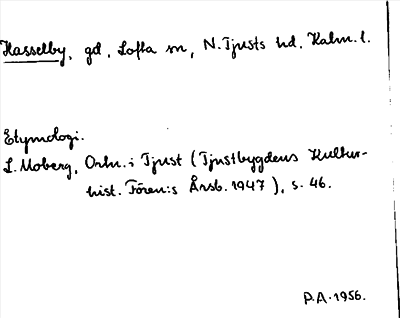 Hasselby, gd, Lofta sn, N. Tjusts hd, Kalm. l.
Etymologi.
L. Moberg, Ortn. i Tjust (Tjustbygdens Kultur-
hist. Fören:s Årsb. 1947), s. 46.
P.A. 1956.